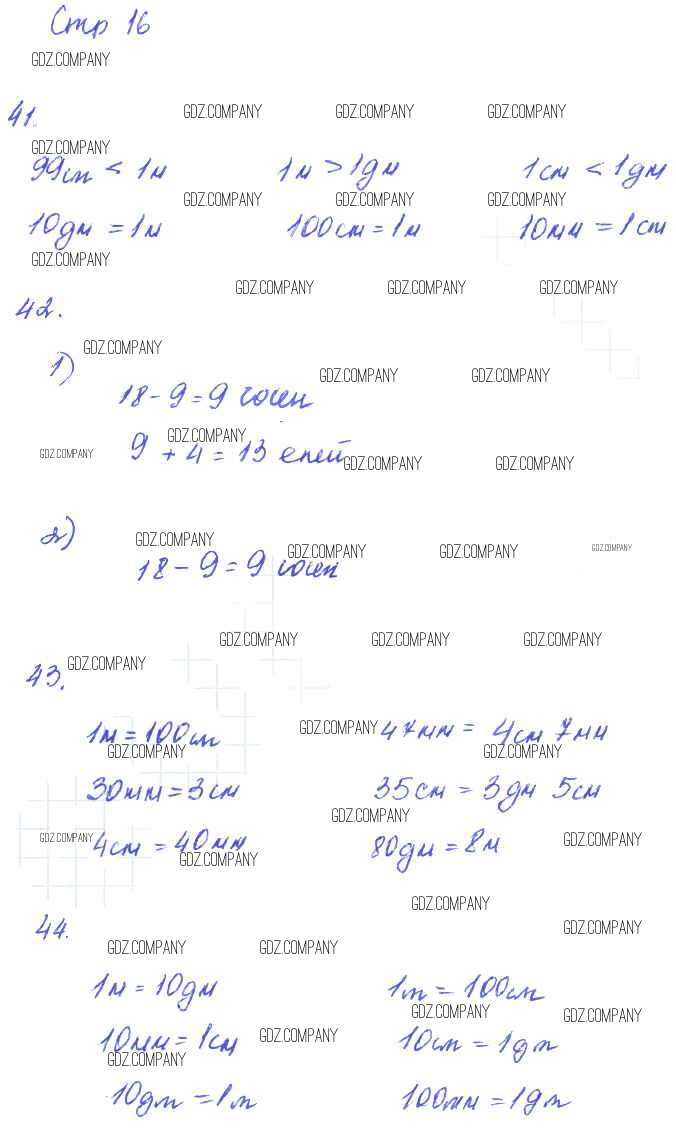 Стр 16
GDZ.COMPANY
41.
GDZ.COMPANY GDZ.COMPANY GDZ.COMPANY
GDZ.COMPANY
99см < 1м 1м > 1дм 1см < 1дм
GDZ.COMPANY GDZ.COMPANY GDZ.COMPANY
10дм = 1м 100см = 1м 10мм = 1см
GDZ.COMPANY
GDZ.COMPANY GDZ.COMPANY GDZ.COMPANY
42.
GDZ.COMPANY
1)
GDZ.COMPANY GDZ.COMPANY
18 - 9 = 9 сосен
GDZ.COMPANY
9 + 4 = 13 елей
GDZ.COMPANY GDZ.COMPANY GDZ.COMPANY
2)
GDZ.COMPANY
GDZ.COMPANY GDZ.COMPANY GDZ.COMPANY
18 - 9 = 9 сосен
GDZ.COMPANY GDZ.COMPANY GDZ.COMPANY
GDZ.COMPANY
43.
1м = 100см GDZ.COMPANY 47мм = 4см 7мм
GDZ.COMPANY GDZ.COMPANY
30мм = 3см 35см = 3дм 5см
GDZ.COMPANY
GDZ.COMPANY 4см = 40мм 80дм = 8м GDZ.COMPANY
GDZ.COMPANY
GDZ.COMPANY
44.
GDZ.COMPANY
GDZ.COMPANY GDZ.COMPANY
1м = 10дм 1м = 100см
GDZ.COMPANY GDZ.COMPANY
10мм = 1см GDZ.COMPANY 10см = 1дм
GDZ.COMPANY
10дм = 1м 100мм = 1дм